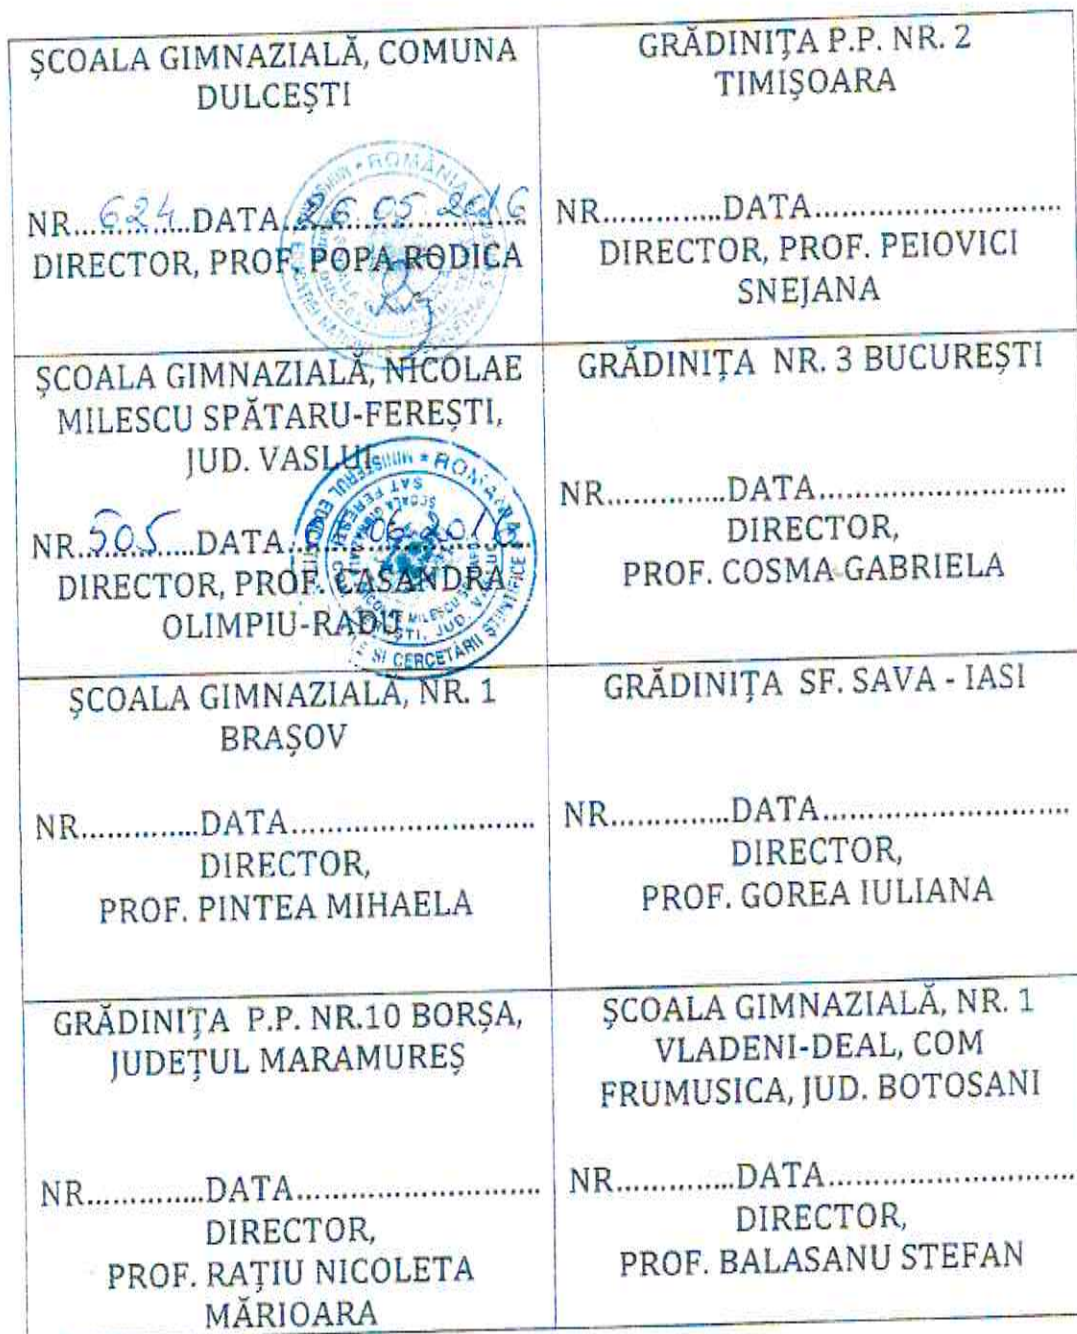 ȘCOALA GIMNAZIALĂ, COMUNA
DULCEȘTI
NR...624...DATA...26 05 2016
DIRECTOR, PROF. POPA RODICA
GRĂDINIȚA P.P. NR. 2
TIMIȘOARA
NR.............DATA...........................
DIRECTOR, PROF. PEIOVICI
SNEJANA
ȘCOALA GIMNAZIALĂ, NICOLAE
MILESCU SPĂTARU-FEREȘTI,
JUD. VASLUI
NR.505.....DATA 06 2016
DIRECTOR, PROF. CASANDRA
OLIMPIU-RADU
GRĂDINIȚA NR. 3 BUCUREȘTI
NR.............DATA...........................
DIRECTOR,
PROF. COSMA GABRIELA
ȘCOALA GIMNAZIALĂ, NR. 1
BRAȘOV
NR.............DATA...........................
DIRECTOR,
PROF. PINTEA MIHAELA
GRĂDINIȚA SF. SAVA - IASI
NR.............DATA...........................
DIRECTOR,
PROF. GOREA IULIANA
GRĂDINIȚA P.P. NR.10 BORȘA,
JUDEȚUL MARAMUREȘ
NR.............DATA...........................
DIRECTOR,
PROF. RAȚIU NICOLETA
MĂRIOARA
ȘCOALA GIMNAZIALĂ, NR. 1
VLADENI-DEAL, COM
FRUMUSICA, JUD. BOTOSANI
NR.............DATA...........................
DIRECTOR,
PROF. BALASANU STEFAN
* ROMÂNIA
* ROMÂNIA
ȘI CERCETĂRII ȘTIINȚIFICE
MINISTERUL